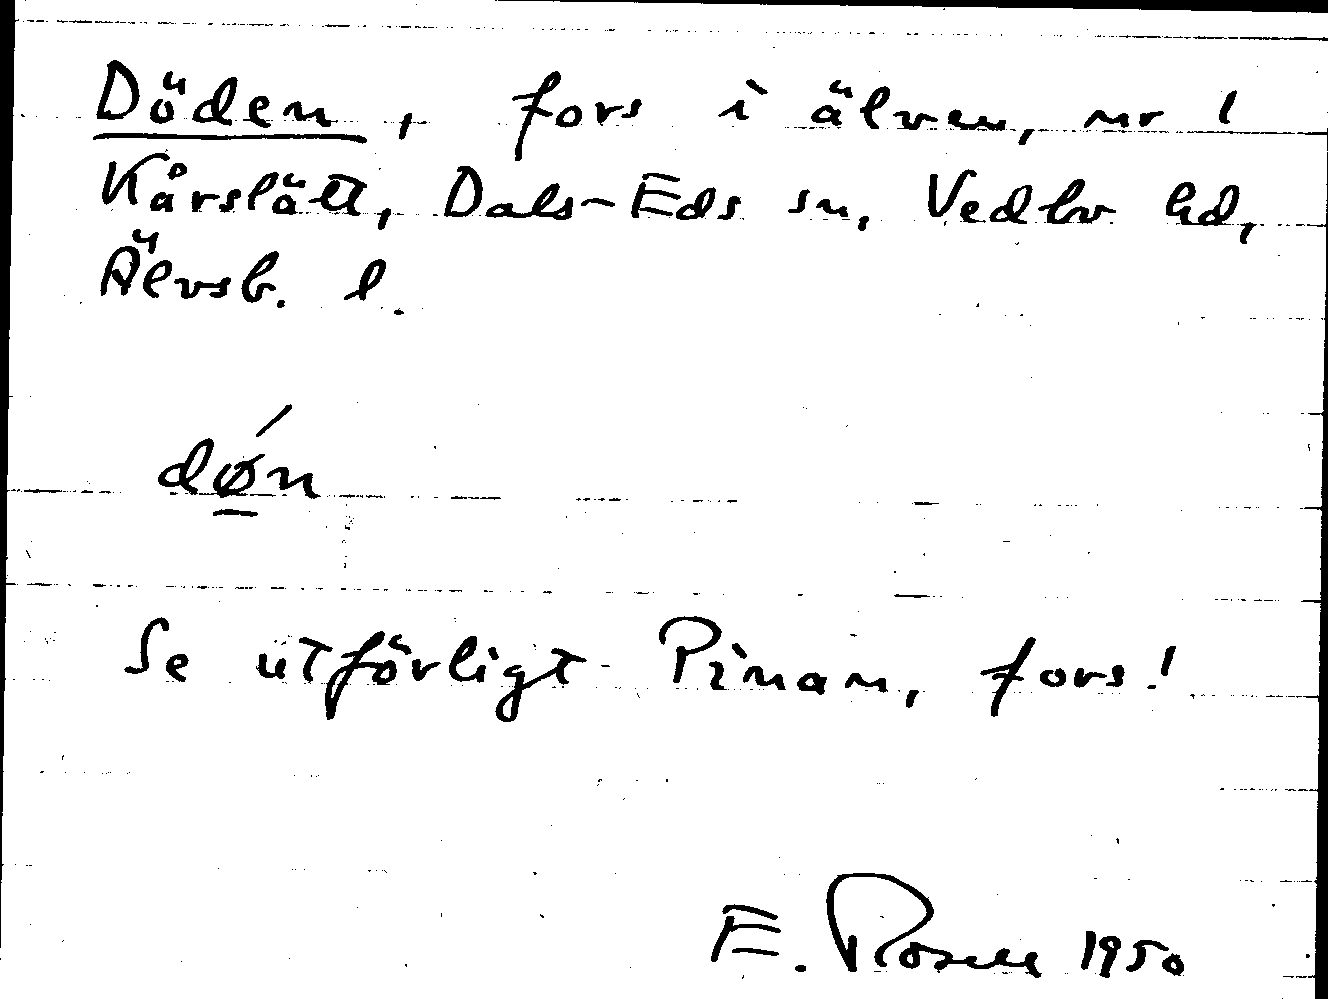 Döden, fors i älven, nr 1
Kårslätt, Dals-Eds sn, Vedbo hd,
Älvsb. l.
dǿ̱n
Se utförligt Pinan, fors!
E. Rosell 1950